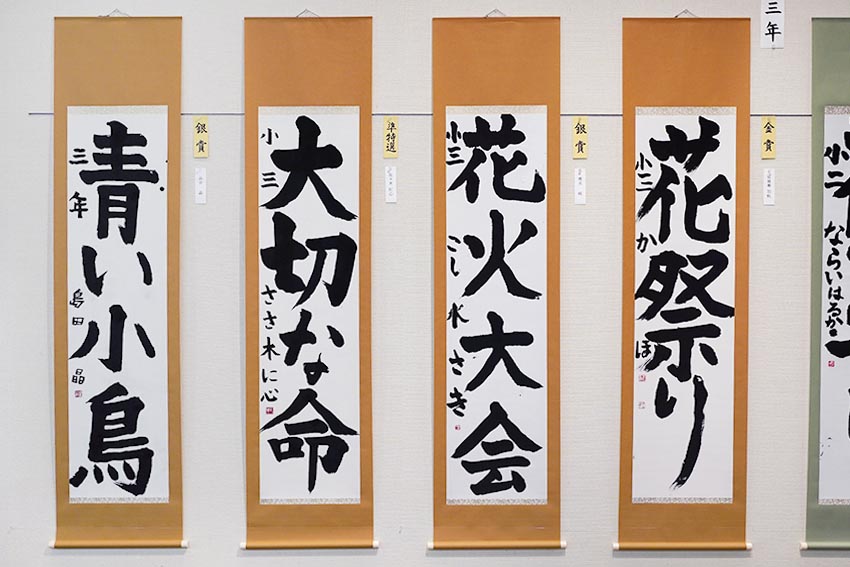 三年
花祭り
小三
かほ
金賞
花火大会
小三
こし水さき
銀賞
大切な命
小三
ささ木に心
準特選
青い小鳥
三年
島田晶
銀賞
小二
ならいはるか